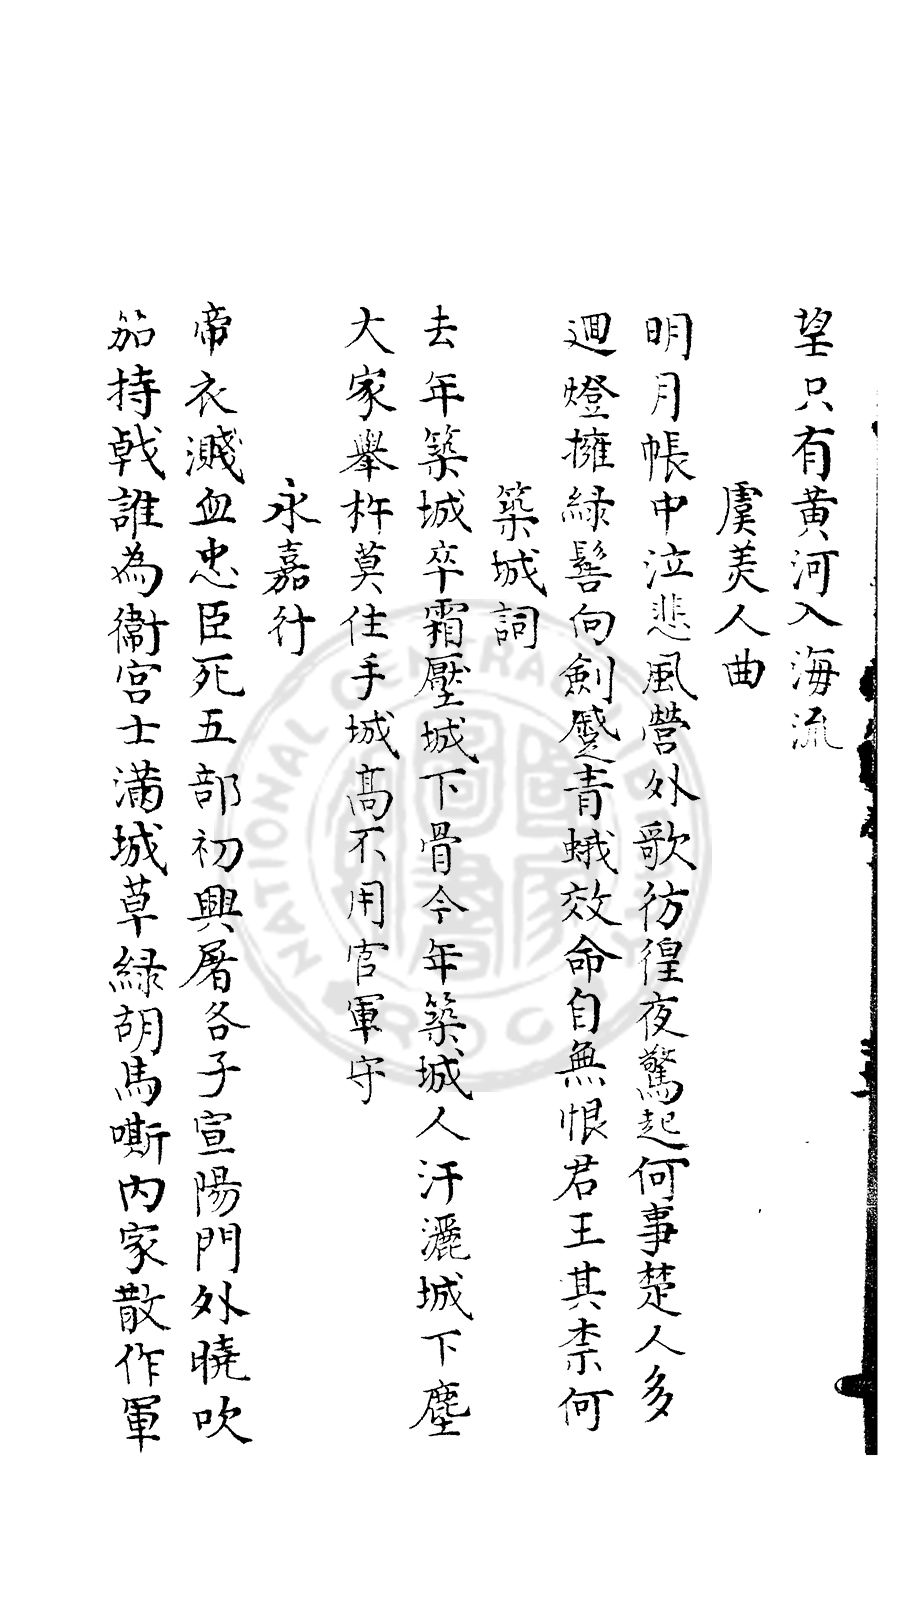 望只有黄河入海流
虞美人曲
明月帳中泣悲風營外歌彷徨夜驚起何事楚人多
迴燈擁緑髻向劍蹙青蛾效命自無恨君王其柰何
築城詞
去年築城卒霜壓城下骨今年築城人汗灑城下塵
大家舉杵莫住手城髙不用官軍守
永嘉行
帝衣濺血忠臣死五部初興屠各子宣陽門外曉吹
笳持戟誰為衞宫士滿城草緑胡馬嘶内家散作軍
NATIONAL CENTRAL LIBRARY
R.O.C.